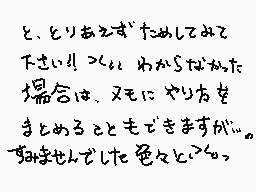 と、とりあえず ためしてみて
下さい!! >< わからなかった
場合は、メモに やり方を
まとめることもできますが…。
すみませんでした 色々と><